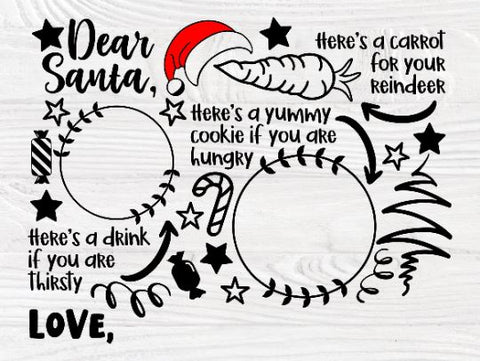 Dear
Santa,
Here's a carrot
for your
reindeer
Here's a yummy
cookie if you are
hungry
Here's a drink
if you are
thirsty
LOVE,